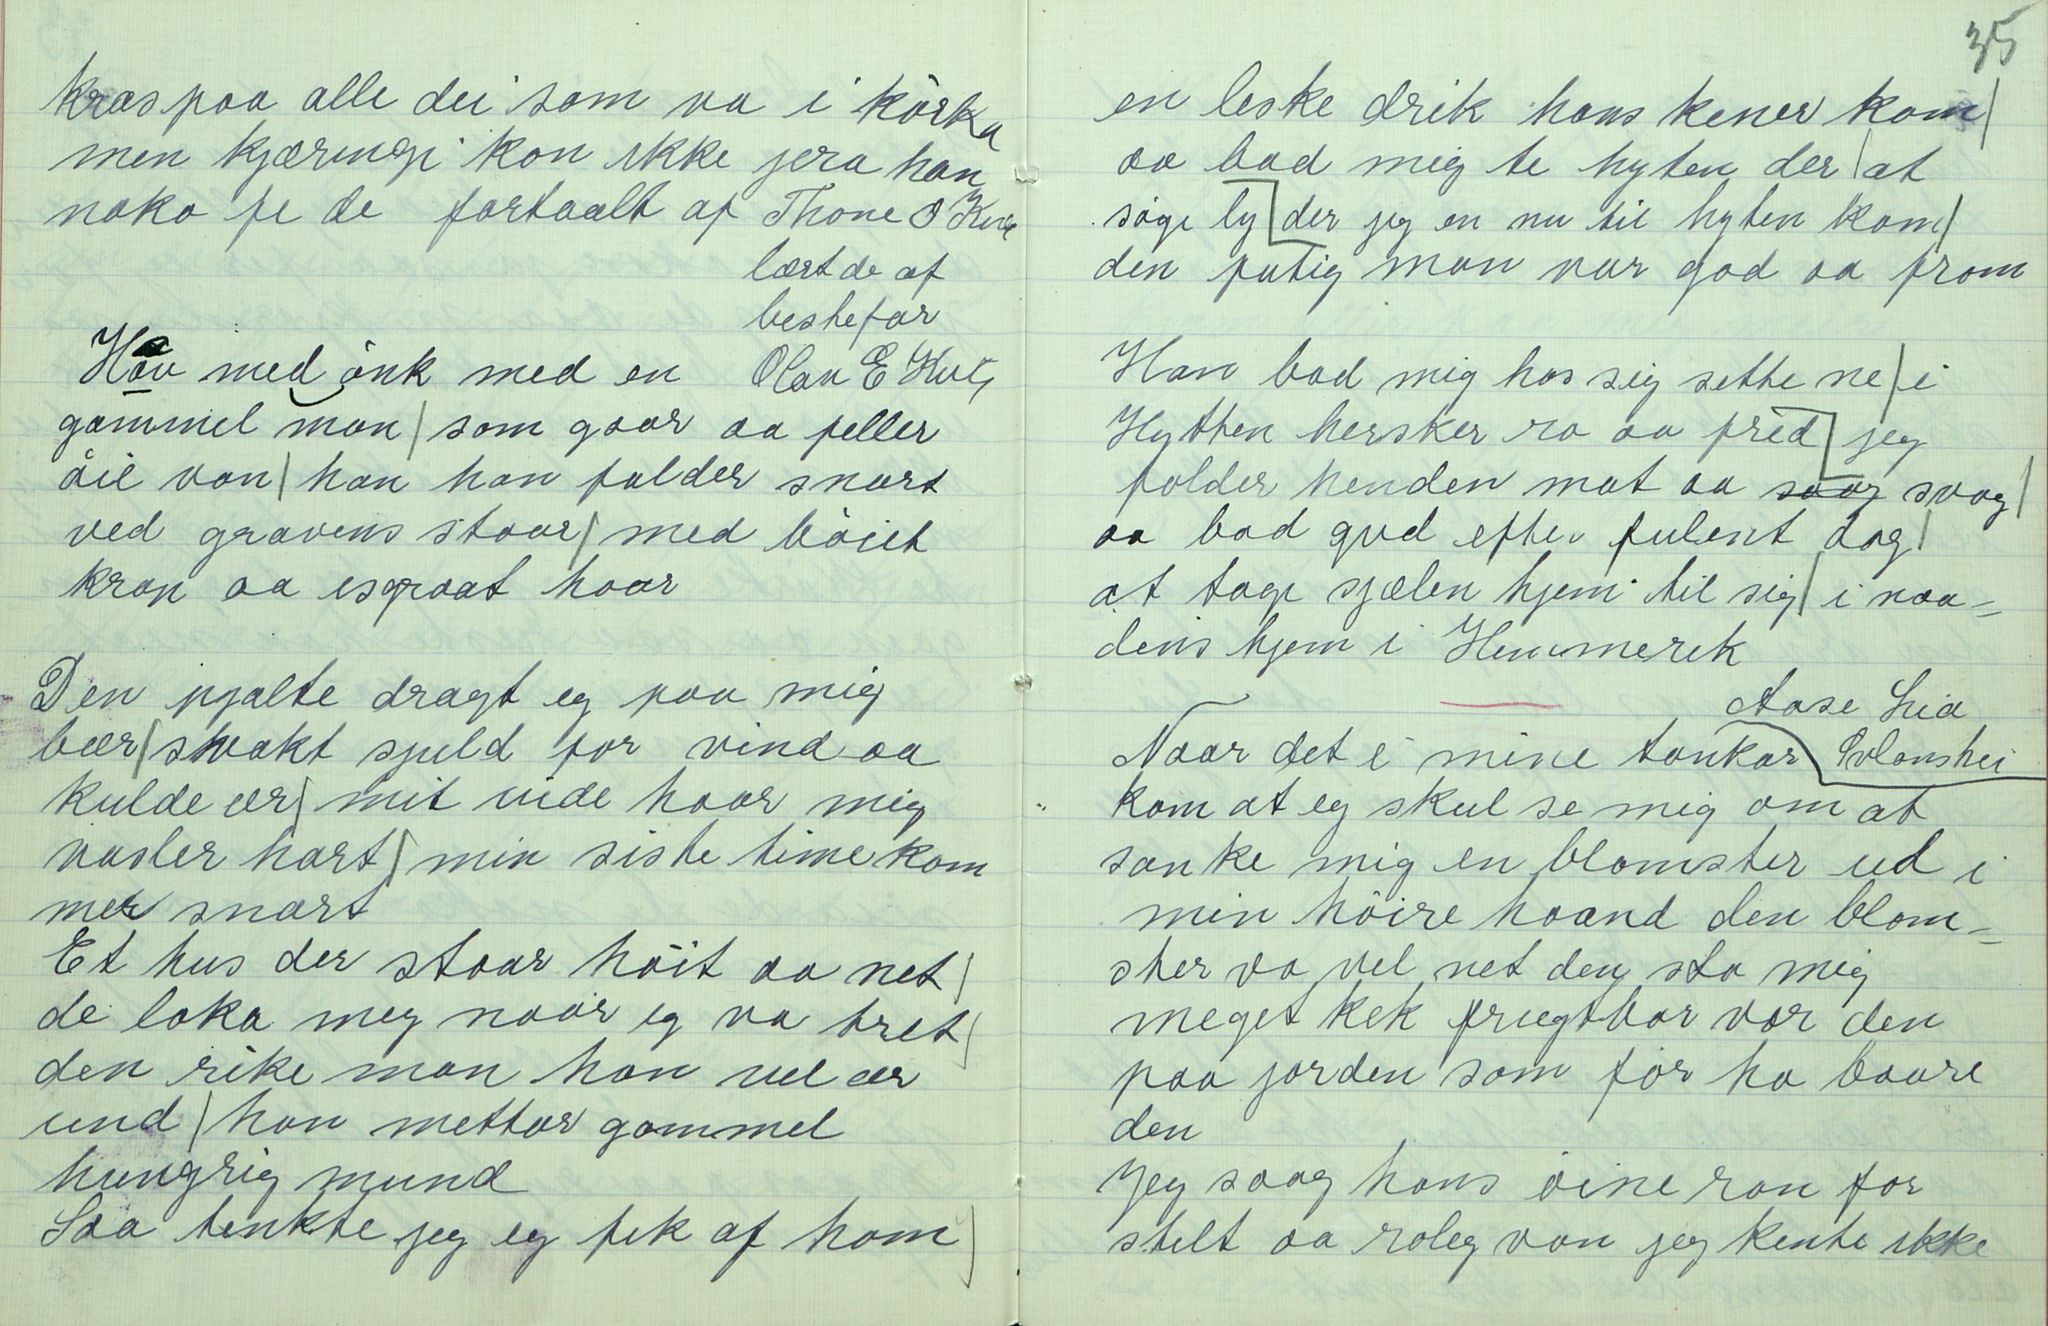 kras paa alle dei som va i kørka
men kjæringi kon ikke jera han
noko fe de fortaalt af Thone O
lært de af
bestefar
Olav E
Hav med ønk med en
gammel man | som gaar aa feller
øil van | han han falder snart
ved gravens staar | med bøiet
krap aa isgraat haar
Den pjalte dragt eg paa mig
bær | svakt sjuld for vind aa
kulde ær | mit vide haar mig
vasler hart | min siste time kom
mer snart
Et hus der staar høit aa net |
de loka meg naar eg va tret |
den rike man han vel ær
und | han mettar gammel
hungrig mund
Saa tenkte jeg eg fik af ham |
35
en leske drik hans kener kom |
aa bad mig te hyten der | at
søge ly der jeg en nu til hyten kom |
den fatig man var god aa from
Han bad mig hos sig sette ne | i
Hytten hersker ro aa fred | jeg
folder henden mat aa svag |
aa bad gud efter fulent dag |
at tage sjælen hjem til sig | i naa-
dens hjem i Himmerik
Aase Lia
Naar det i mine tankar
kom at eg skul se mig om at
sanke mig en blomster ud i
min høire haand den blom-
ster va vel net den sto mig
meget kek frugtbar var den
paa jorden som før ha baare
den
Jeg saag hans øine ran for
stelt aa roleg van jeg kente ikke